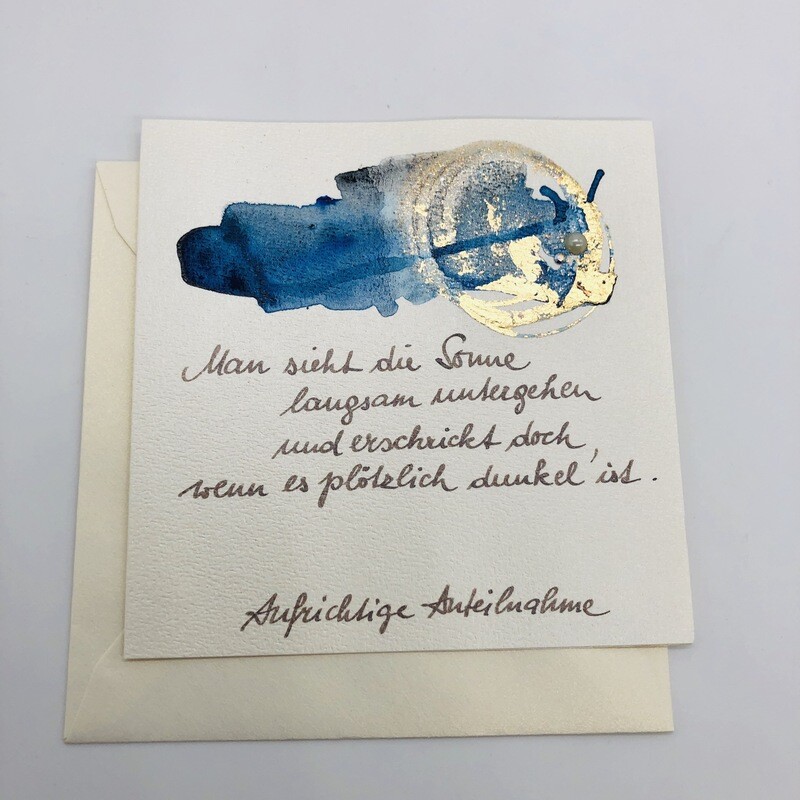 Man sieht die Sonne
langsam untergehen
und erschrickt doch,
wenn es plötzlich dunkel ist.
Aufrichtige Anteilnahme